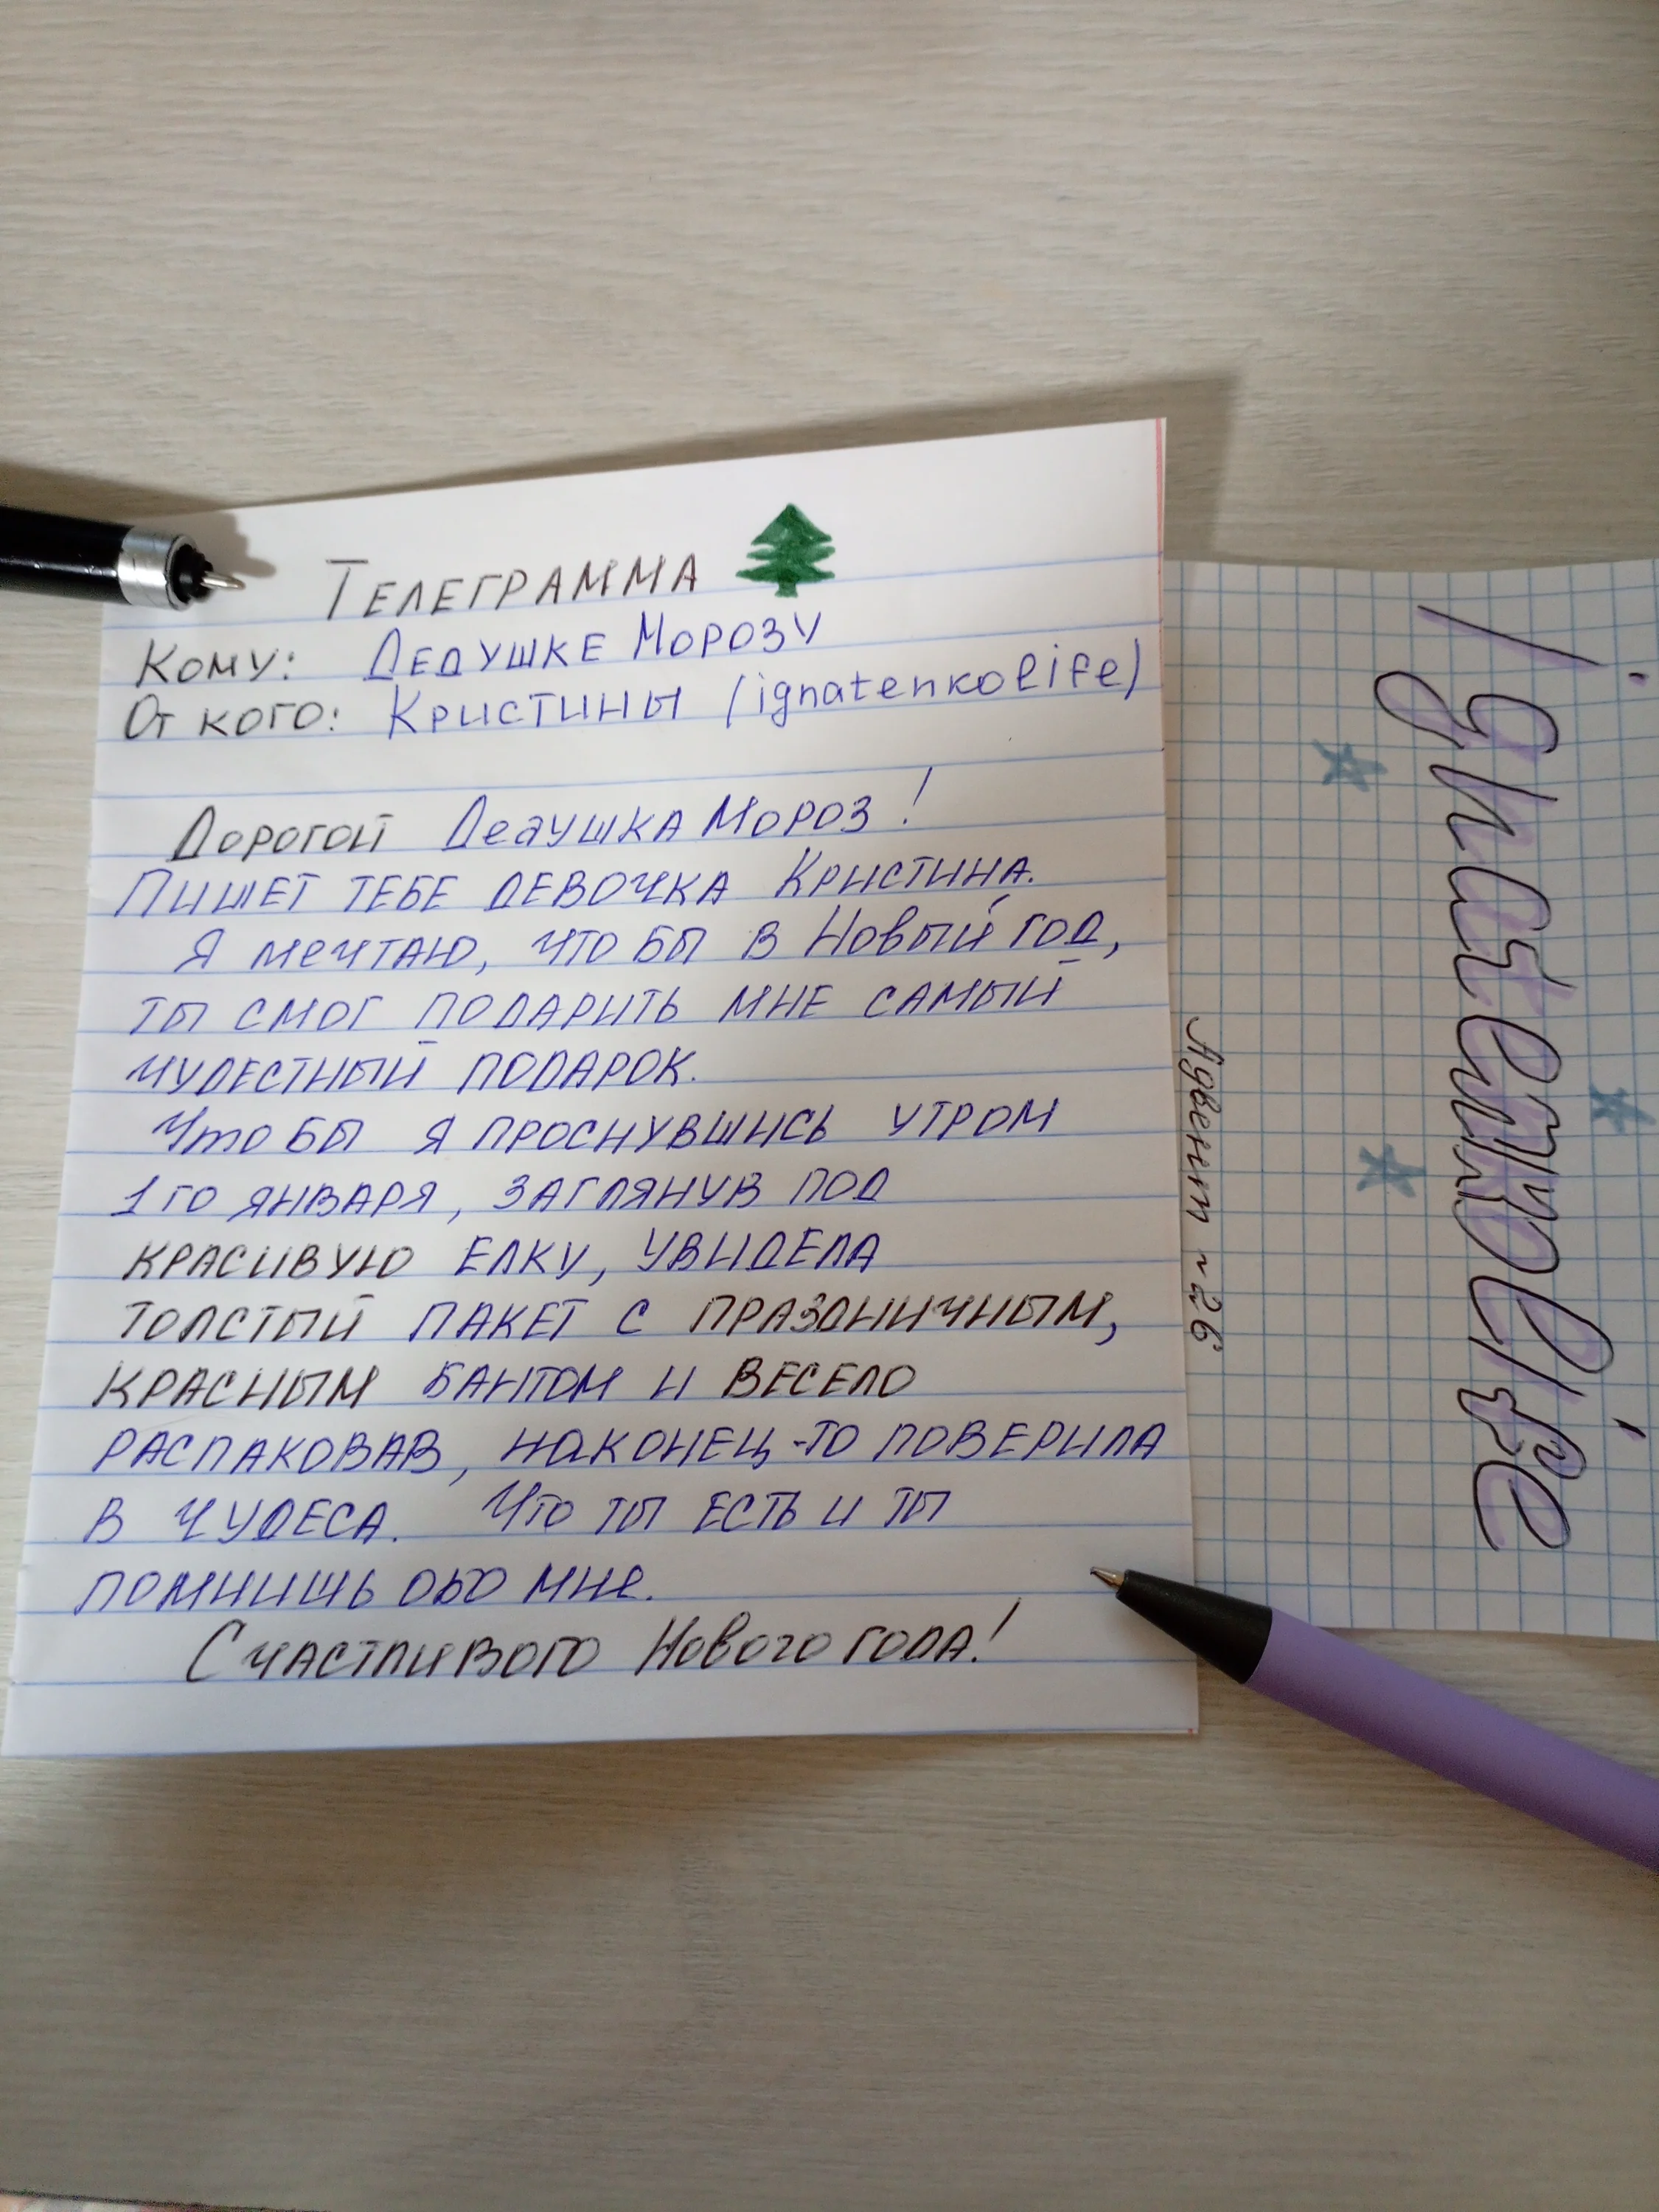 Телеграмма
Кому: Дедушке Морозу
От кого: Кристины (ignatenkolife)
Дорогой Дедушка Мороз!
Пишет тебе девочка Кристина.
Я мечтаю, что бы в Новый год,
ты смог подарить мне самый
чудестный подарок.
Что бы я проснувшись утром
1го января, заглянув под
красивую елку, увидела
толстый пакет с праздничным,
красным бантом и весело
распаковав, наконец-то поверила
в чудеса. Что ты есть и ты
помнишь обо мне.
Счастливого Нового года!
ignatenkolife
Адвент ~26